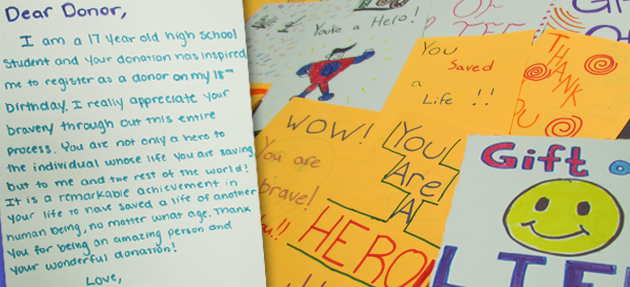 Dear Donor,
I am a 17 year old high school
student and your donation has inspired
me to register as a donor on my 18th
birthday. I really appreciate your
bravery through out this entire
process. You are not only a hero to
the individual whose life you are saving
but to me and the rest of the world!
It is a remarkable achievement in
your life to have saved a life of another
human being, no matter what age. Thank
you for being an amazing person and
your wonderful donation!
Love,
You're a Hero!
You
Saved
a
Life !!
THANK
WOW!
You are
brave!
YOU
Are
A
HERO
Gift
LIFE